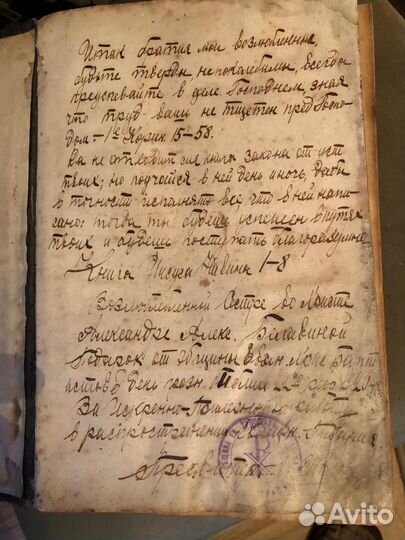 Итак братия мои возлюбенные,
будьте тверды, непоколебимы, всегда
преуспевайте в деле Господнем, зная
что труд ваш не тщетен пред Госпо-
дом – 1е Корин 15–58.
Да не отходит сия книга закона от уст
твоих; но поучайся в ней день и ночь, дабы
в точности исполнять все что в ней напи-
сано: тогда ты будешь успешен в путях
твоих и будешь поступать благоразумно
Книга Иисуса Навина 1–8
Возлюбленной Сестре во Христе
Александре Алекс. Белавиной
Подарок от общины Еван. Хрис Бапт
истов В день
За Искренно
в распространении
Пресвитер
Avito